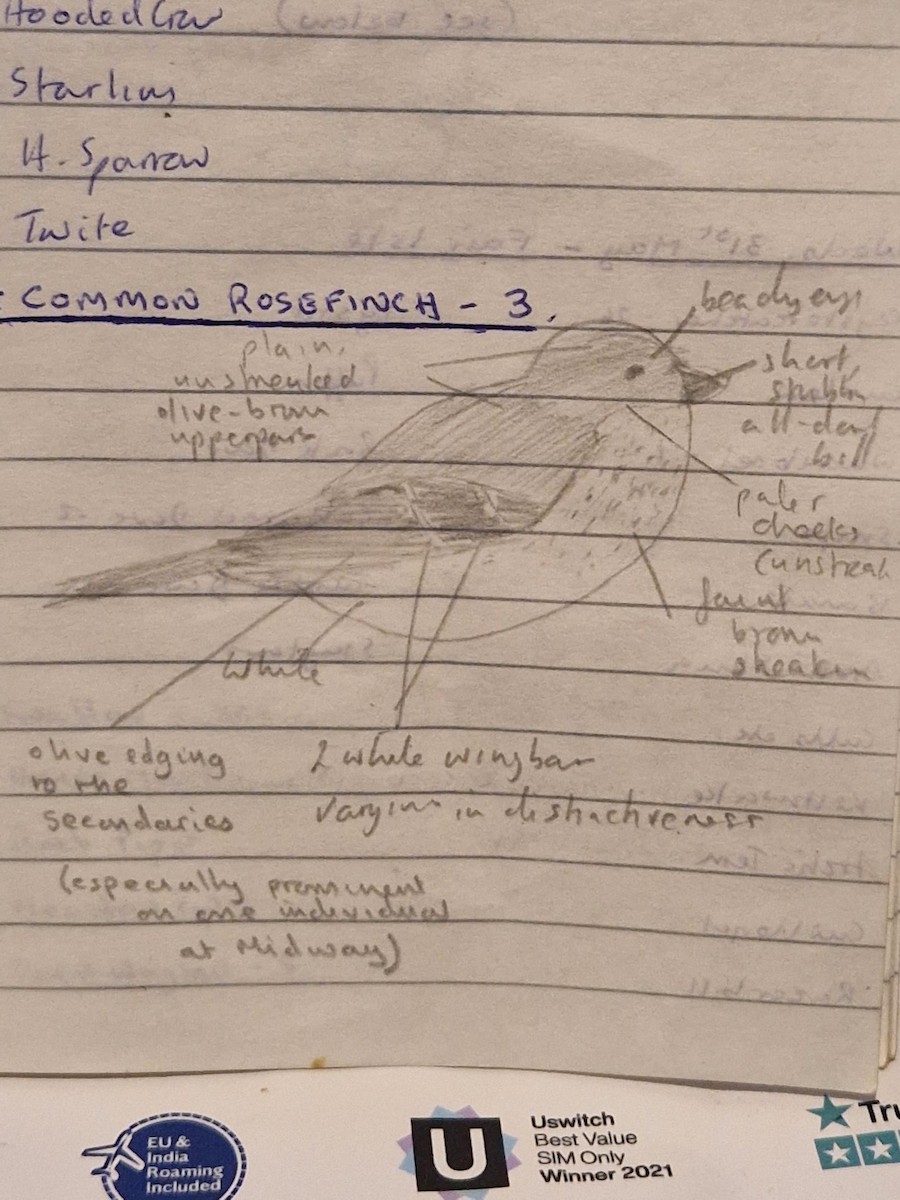 Hooded Crow
Starling
H. Sparrow
Twite
COMMON ROSEFINCH - 3.
beady eye
plain,
unstreaked
olive-brown
upperparts
short,
stubby
all-dark
bill
paler
cheeks
(unstreak
faint
brown
streaking
white
olive edging
to the
secondaries
(especially prominent
on one individual
at Midway)
2 white wingbar
varying in distinctiveness
EU &
India
Roaming
Included
U
Uswitch
Best Value
SIM Only
Winner 2021
Tru